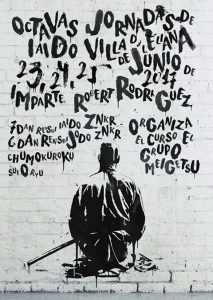 OCTAVAS JORNADAS DE
IAIDO VILLA D'ELIANA
23, 24, 25 DE JUNIO DE 2017
IMPARTE ROBERT RODRIGUEZ
7 DAN RENSHI IAIDO ZNKR
6 DAN RENSHI JODO ZNKR
CHUMOKUROKU
SUIO RYU
ORGANIZA
EL CURSO EL
GRUPO
MEIGETSU